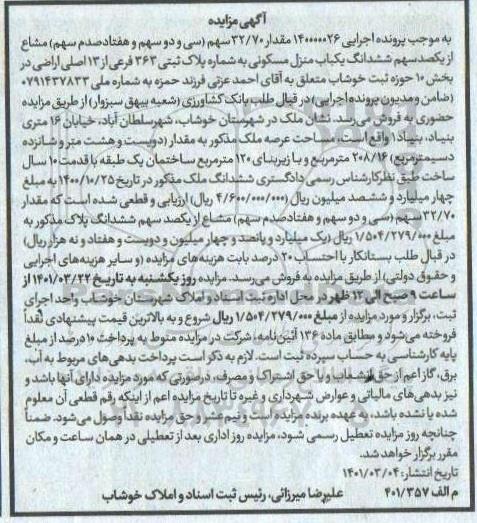 آگهی مزایده
به موجب پرونده اجرایی ۱۴۰۰۰۰۰۲۶ مقدار ۳۲/۷۰ سهم (سی و دو سهم و هفتادصدم سهم) مشاع
از یکصد سهم ششدانگ یکباب منزل مسکونی به شماره پلاک ثبتی ۳۶۳ فرعی از ۱۳ اصلی اراضی در
بخش ۱۰ حوزه ثبت خوشاب متعلق به آقای احمد عزتی فرزند حمزه به شماره ملی ۰۷۹۱۴۳۷۸۳۳
(ضامن و مدیون پرونده اجرایی) در قبال طلب بانک کشاورزی (شعبه بیهق سبزوار) از طریق مزایده
حضوری به فروش می‌رسد. نشان ملک در شهرستان خوشاب، شهر سلطان آباد، خیابان ۱۶ متری
بنیاد، بنیاد ۱ واقع است، مساحت عرصه ملک مذکور به مقدار (دویست و هشت متر و شانزده
دسیمترمربع) ۲۰۸/۱۶ مترمربع و با زیربنای ۱۲۰ مترمربع ساختمان یک طبقه با قدمت ۱۰ سال
ساخت طبق نظر کارشناس رسمی دادگستری ششدانگ ملک مذکور در تاریخ ۱۴۰۰/۱۰/۲۵ به مبلغ
چهار میلیارد و ششصد میلیون ریال (۴/۶۰۰/۰۰۰/۰۰۰ ریال) ارزیابی و قطعی شده است که مقدار
۳۲/۷۰ سهم (سی و دو سهم و هفتادصدم سهم) مشاع از یکصد سهم ششدانگ پلاک مذکور به
مبلغ ۱/۵۰۴/۲۷۹/۰۰۰ ریال (یک میلیارد و پانصد و چهار میلیون و دویست و هفتاد و نه هزار ریال)
در قبال طلب بستانکار با احتساب ۲۰ درصد بابت هزینه‌های مزایده (و سایر هزینه‌های اجرایی
و حقوق دولتی) از طریق مزایده به فروش می‌رسد. مزایده روز یکشنبه به تاریخ ۱۴۰۱/۰۳/۲۲ از
ساعت ۹ صبح الی ۱۲ ظهر در محل اداره ثبت اسناد و املاک شهرستان خوشاب واحد اجرای
ثبت، برگزار و مورد مزایده از مبلغ ۱/۵۰۴/۲۷۹/۰۰۰ ریال شروع و به بالاترین قیمت پیشنهادی نقداً
فروخته می‌شود و مطابق ماده ۱۳۶ آئین‌نامه، شرکت در مزایده منوط به پرداخت ۱۰ درصد از مبلغ
پایه کارشناسی به حساب سپرده ثبت است. لازم به ذکر است پرداخت بدهی‌های مربوط به آب،
برق، گاز اعم از حق انشعاب و یا حق اشتراک و مصرف، درصورتی که مورد مزایده دارای آنها باشد و
نیز بدهی‌های مالیاتی و عوارض شهرداری و غیره تا تاریخ مزایده اعم از اینکه رقم قطعی آن معلوم
شده یا نشده باشد، به عهده برنده مزایده است و نیم عشر و حق مزایده نقداً وصول می‌شود. ضمناً
چنانچه روز مزایده تعطیل رسمی شود، مزایده روز اداری بعد از تعطیلی در همان ساعت و مکان
مقرر برگزار خواهد شد.
تاریخ انتشار: ۱۴۰۱/۰۳/۰۴
م الف ۴۰۱/۳۵۷ علیرضا میرزائی، رئیس ثبت اسناد و املاک خوشاب